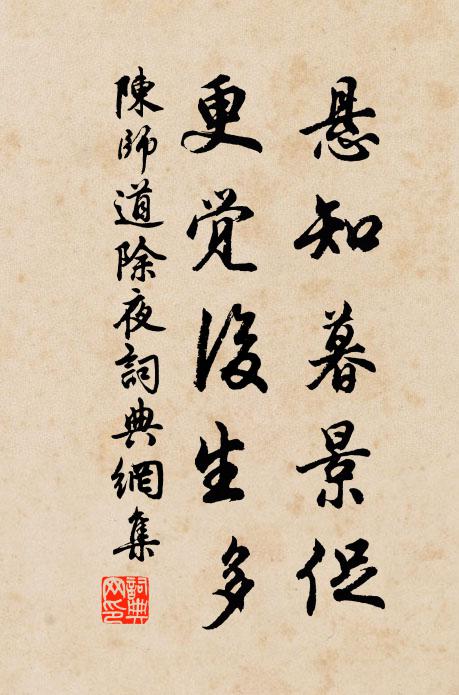 悬知暮景促
更觉後生多
陳師道除夜詞典網集
詞典網印